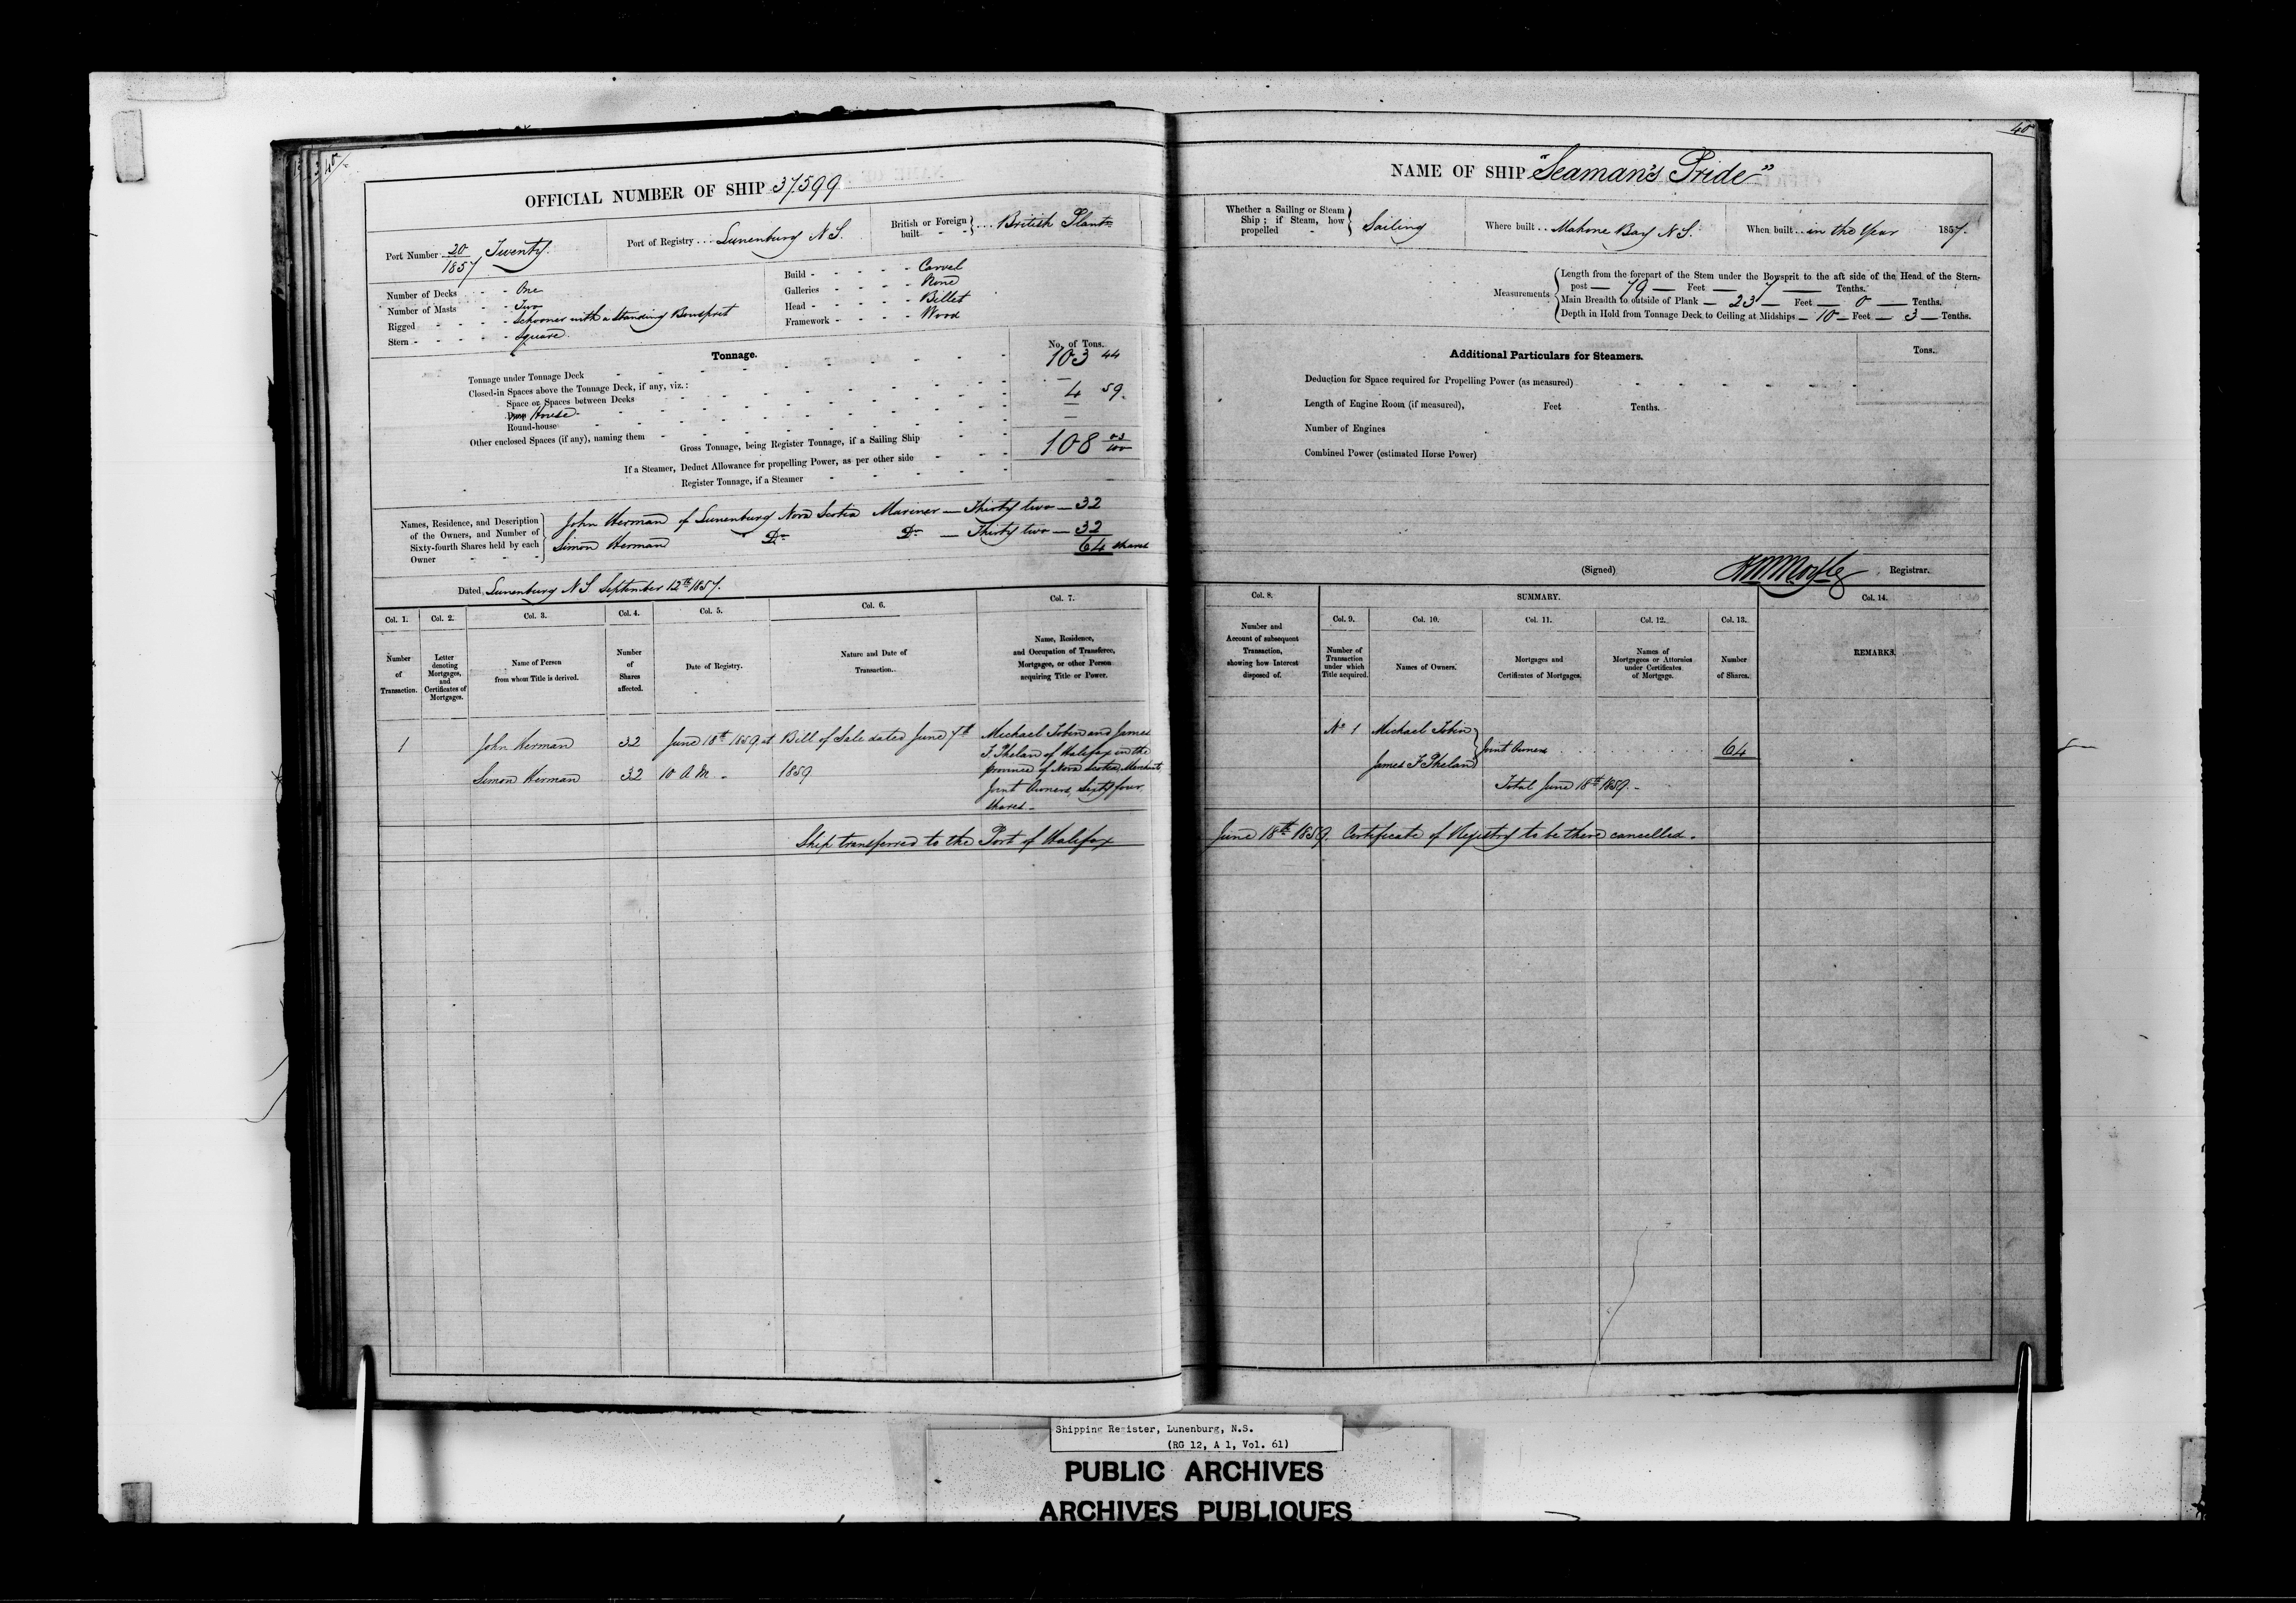 40
OFFICIAL NUMBER OF SHIP 37599
Port Number 20/1857 Twenty.
Port of Registry ... Lunenburg N S.
British or Foreign built } ... British Plant
Number of Decks - - One
Number of Masts - Two
Rigged - - - - Schooner with a Standing Bowsprit
Stern - - - - - Square.
Build - - - - - Carvel
Galleries - - - - None
Head - - - - - Billet
Framework - - - - Wood
Tonnage.
No. of Tons.
Tonnage under Tonnage Deck 103 44
Closed-in Spaces above the Tonnage Deck, if any, viz.: —
Space or Spaces between Decks 4 59.
Poop House —
Round-house —
Other enclosed Spaces (if any), naming them
Gross Tonnage, being Register Tonnage, if a Sailing Ship 108 03/100
If a Steamer, Deduct Allowance for propelling Power, as per other side
Register Tonnage, if a Steamer
Names, Residence, and Description of the Owners, and Number of Sixty-fourth Shares held by each Owner
John Herman of Lunenburg Nova Scotia Mariner — Thirty two — 32
Simon Herman Do Do — Thirty two — 32
64 shares
Dated, Lunenburg N S September 12th 1857.
Col. 1. Col. 2. Col. 3. Col. 4. Col. 5. Col. 6. Col. 7.
Number of Transaction.
Letter denoting Mortgages, and Certificates of Mortgages.
Name of Person from whom Title is derived.
Number of Shares affected.
Date of Registry.
Nature and Date of Transaction.
Name, Residence, and Occupation of Transferee, Mortgagee, or other Person acquiring Title or Power.
1 John Herman 32 June 18th 1859, at Bill of Sale dated June 7th Michael Tobin and James
F. Phelan of Halifax in the
Simon Herman 32 10 A.M. - 1859 province of Nova Scotia, Merchants,
Joint Owners, Sixty four
shares.-
Ship transferred to the Port of Halifax
40
NAME OF SHIP "Seaman's Pride"
Whether a Sailing or Steam Ship; if Steam, how propelled } Sailing
Where built .. Mahone Bay N S.
When built .. in the Year 1857.
Measurements
Length from the forepart of the Stem under the Bowsprit to the aft side of the Head of the Stern-
post — 79 — Feet — 7 — Tenths.
Main Breadth to outside of Plank — 23 — Feet — 0 — Tenths.
Depth in Hold from Tonnage Deck to Ceiling at Midships — 10 — Feet — 3 — Tenths.
Additional Particulars for Steamers.
Tons.
Deduction for Space required for Propelling Power (as measured)
Length of Engine Room (if measured), Feet Tenths.
Number of Engines
Combined Power (estimated Horse Power)
(Signed) Registrar.
Col. 8. SUMMARY. Col. 14.
Col. 9. Col. 10. Col. 11. Col. 12. Col. 13.
Number and Account of subsequent Transaction, showing how Interest disposed of.
Number of Transaction under which Title acquired.
Names of Owners.
Mortgages and Certificates of Mortgages.
Names of Mortgagees or Attornies under Certificates of Mortgage.
Number of Shares.
REMARKS.
No 1 Michael Tobin
Joint Owners 64
James F Phelan
Total June 18th 1859.-
June 18th 1859. Certificate of Registry to be there cancelled.
Shipping Register, Lunenburg, N.S.
(RG 12, A 1, Vol. 61)
PUBLIC ARCHIVES
ARCHIVES PUBLIQUES